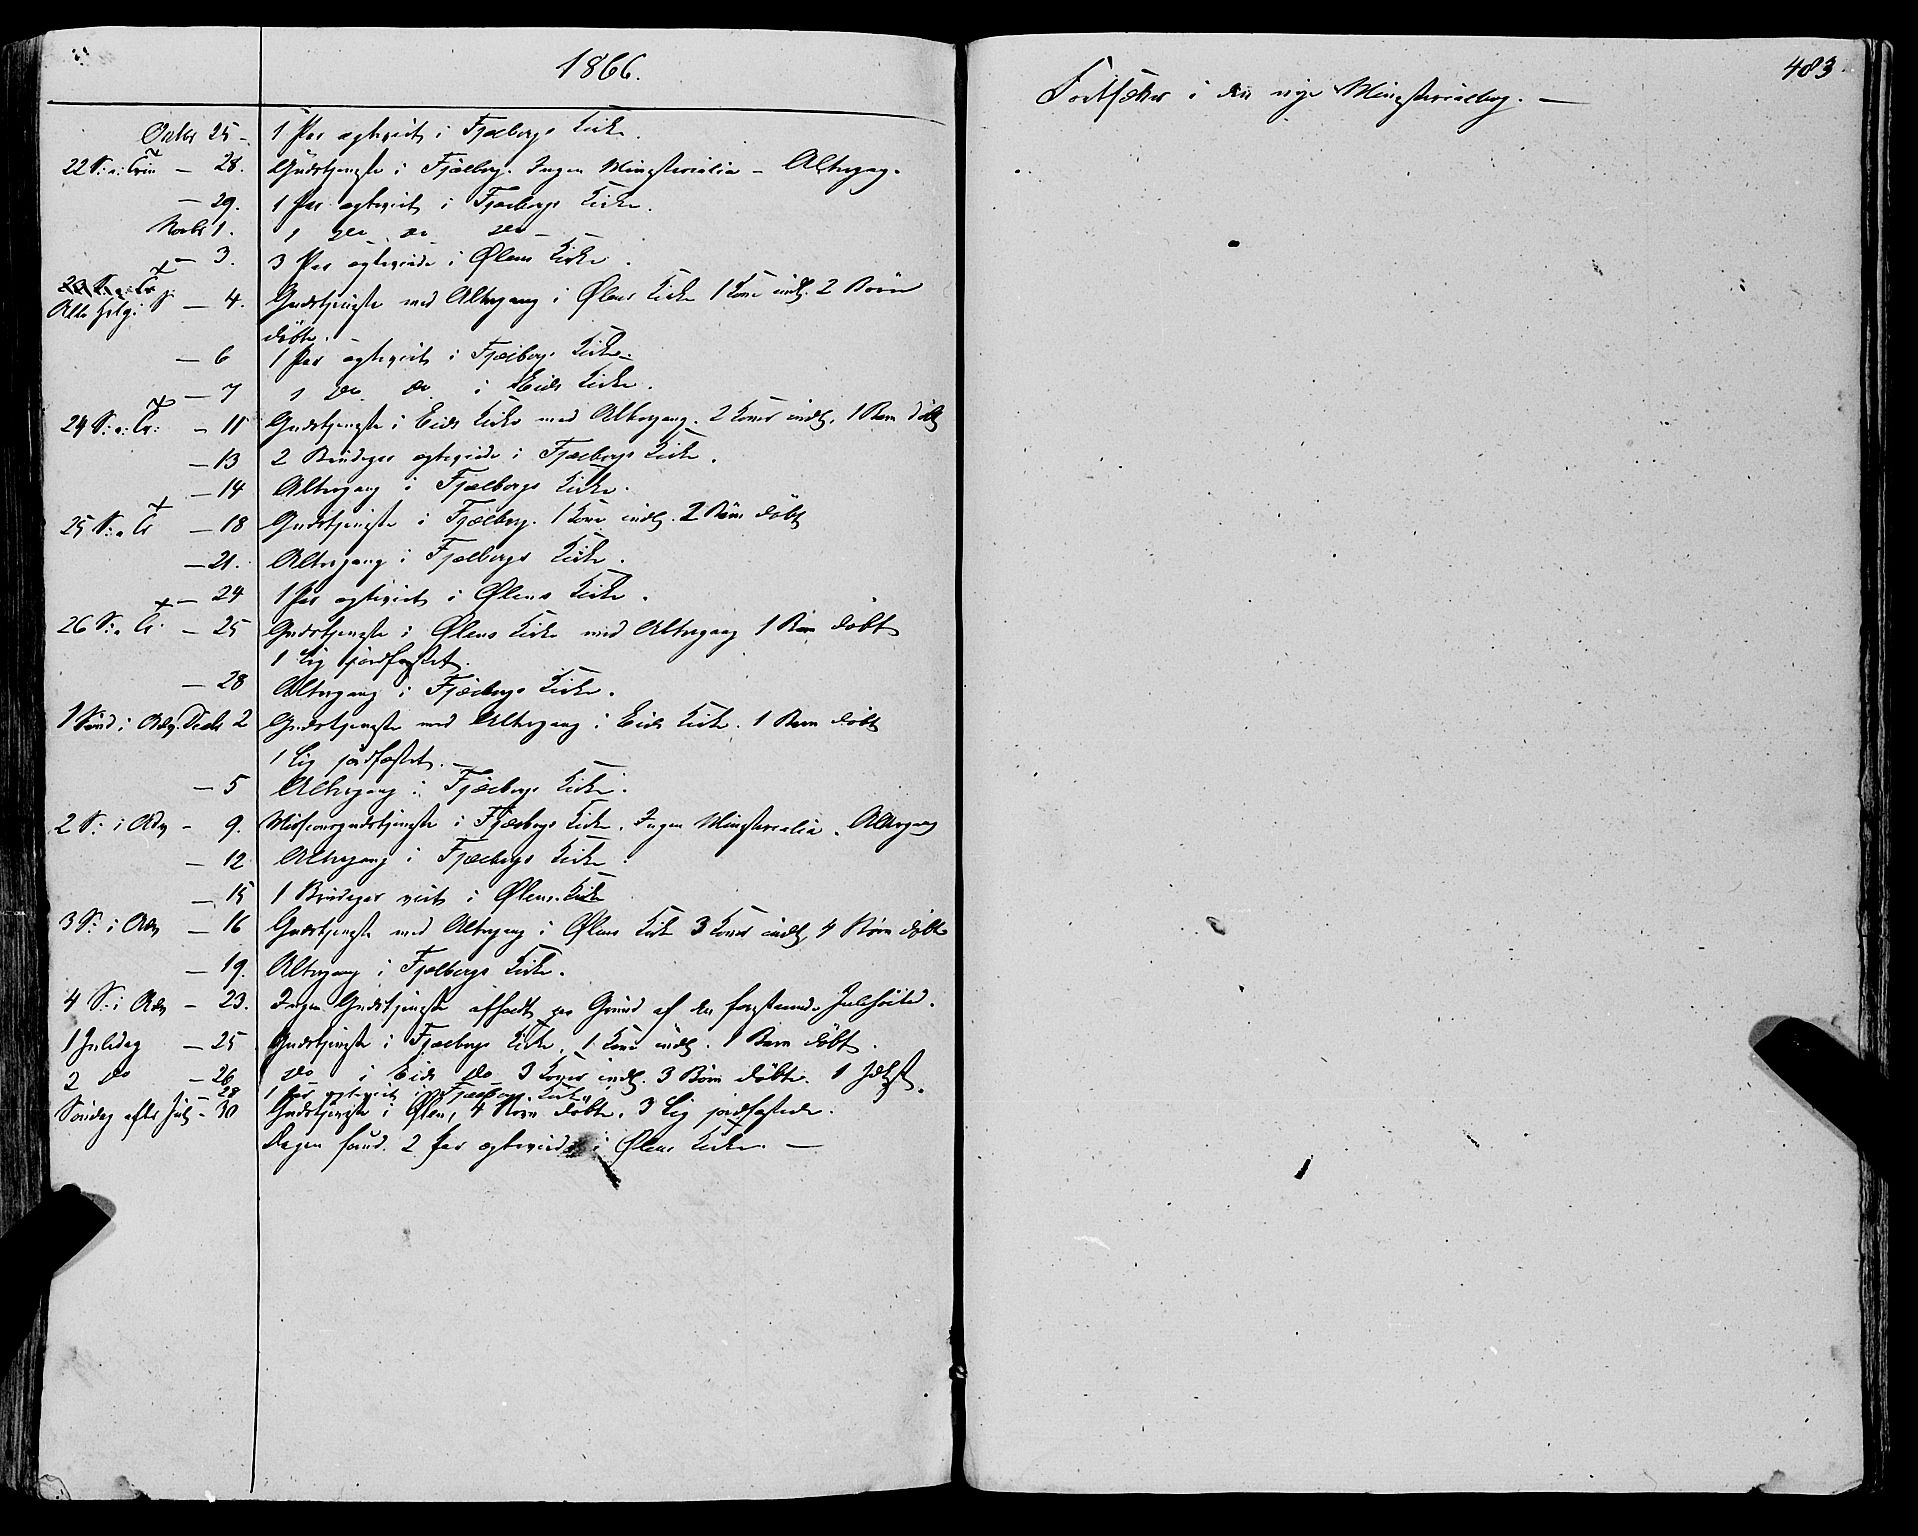 1866.
Octbr 25 - 1 Par ægteviet i Fjelbergs Kirke.
22 S: a: Trin - 28. Gudstjeneste i Fjelberg. Ingen Ministerialia - Altergang.
- 29. 1 Par ægteviet i Fjelbergs Kirke.
Novbr 1. 1 do do do -
- 3. 3 Par ægteviede i Ølens Kirke.
Alle Helg: S - 4. Gudstjeneste med Altergang i Ølens Kirke 1 Kone indl. 2 Børn
døbte.
- 6 1 Par ægteviet i Fjelbergs Kirke.
- 7 1 do do i Eids Kirke.
24 S: a: Tr: - 11 Gudstjeneste i Eids Kirke med Altergang. 2 Koner indl. 1 Barn døbt
- 13 2 Brudepar ægteviede i Fjelbergs Kirke.
- 14 Altergang i Fjelbergs Kirke.
25 S: a Tr - 18 Gudstjeneste i Fjelberg. 1 Kone indl. 2 Børn døbt
- 21. Altergang i Fjelbergs Kirke.
- 24 1 Par ægteviet i Ølens Kirke.
26 S: a Tr - 25 Gudstjeneste i Ølens Kirke med Altergang 1 Barn døbt
1 Lig jordfæstet.
- 28 Altergang i Fjelbergs Kirke.
1 Sønd i Adv. Decbr 2 Gudstjeneste med Altergang i Eids Kirke. 1 Barn døbt
1 Lig jordfæstet. -
- 5 Altergang i Fjelbergs Kirke.
2 S: i Adv - 9. Missionsgudstjeneste i Fjelbergs Kirke. Ingen Ministerialia. Altergang
- 12 Altergang i Fjelbergs Kirke.
- 15 1 Brudepar viet i Ølens Kirke
3 S: i Adv - 16 Gudstjeneste med Altergang i Ølens Kirke 3 Koner indl. 4 Børn døbte
- 19. Altergang i Fjelbergs Kirke.
4 S: i Adv - 23. Ingen Gudstjeneste afholdt paa Grund af den forestaaende Julehøitid.
1 Juledag - 25 Gudstjeneste i Fjelbergs Kirke. 1 Kone indl. 1 Barn døbt.
2 do - 26 do i Eids do 3 Koner indl. 3 Børn døbte. 1 Jdfst.
- 28 1 Par ægteviet i Fjelbergs Kirke.
Søndag efter Jul - 30 Gudstjeneste i Ølen, 4 Børn døbte. 3 Lig jordfæstede.
Dagen forud. 2 Par ægteviede i Ølens Kirke. -
483.
Fortsættes i den nye Ministerialbog. -